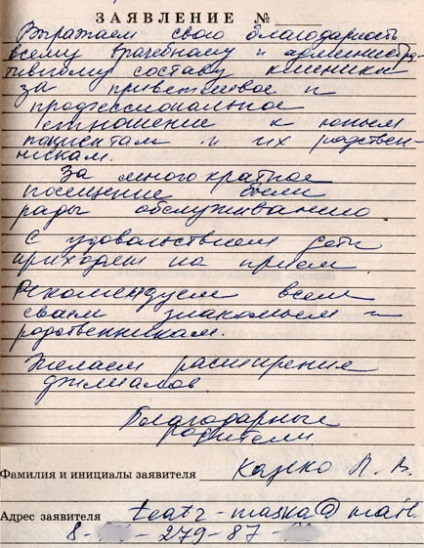 ЗАЯВЛЕНИЕ №
Выражаем свою благодарность
всему врачебному и администра-
тивному составу клиники
за приветливое и
профессиональное
отношение к юным
пациентам и их родствен-
никам.
За многократное
посещение были
рады обслуживанию.
С удовольствием дети
приходят на прием.
Рекомендуем всем
своим знакомым и
родственникам.
Желаем расширения
филиалов.
Благодарные
родители
Фамилия и инициалы заявителя Казеко Л. В.
Адрес заявителя teatr-maska@mail.
8- -279-87-